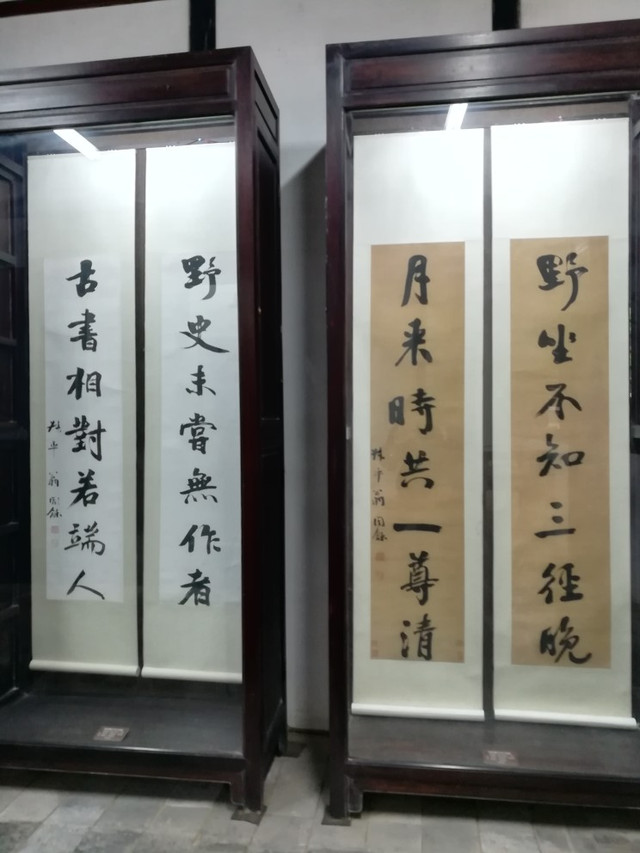 野坐不知三徑晚
月来時共一尊清
叔平翁同龢
野史未嘗無作者
古書相對若端人
叔平 翁同龢